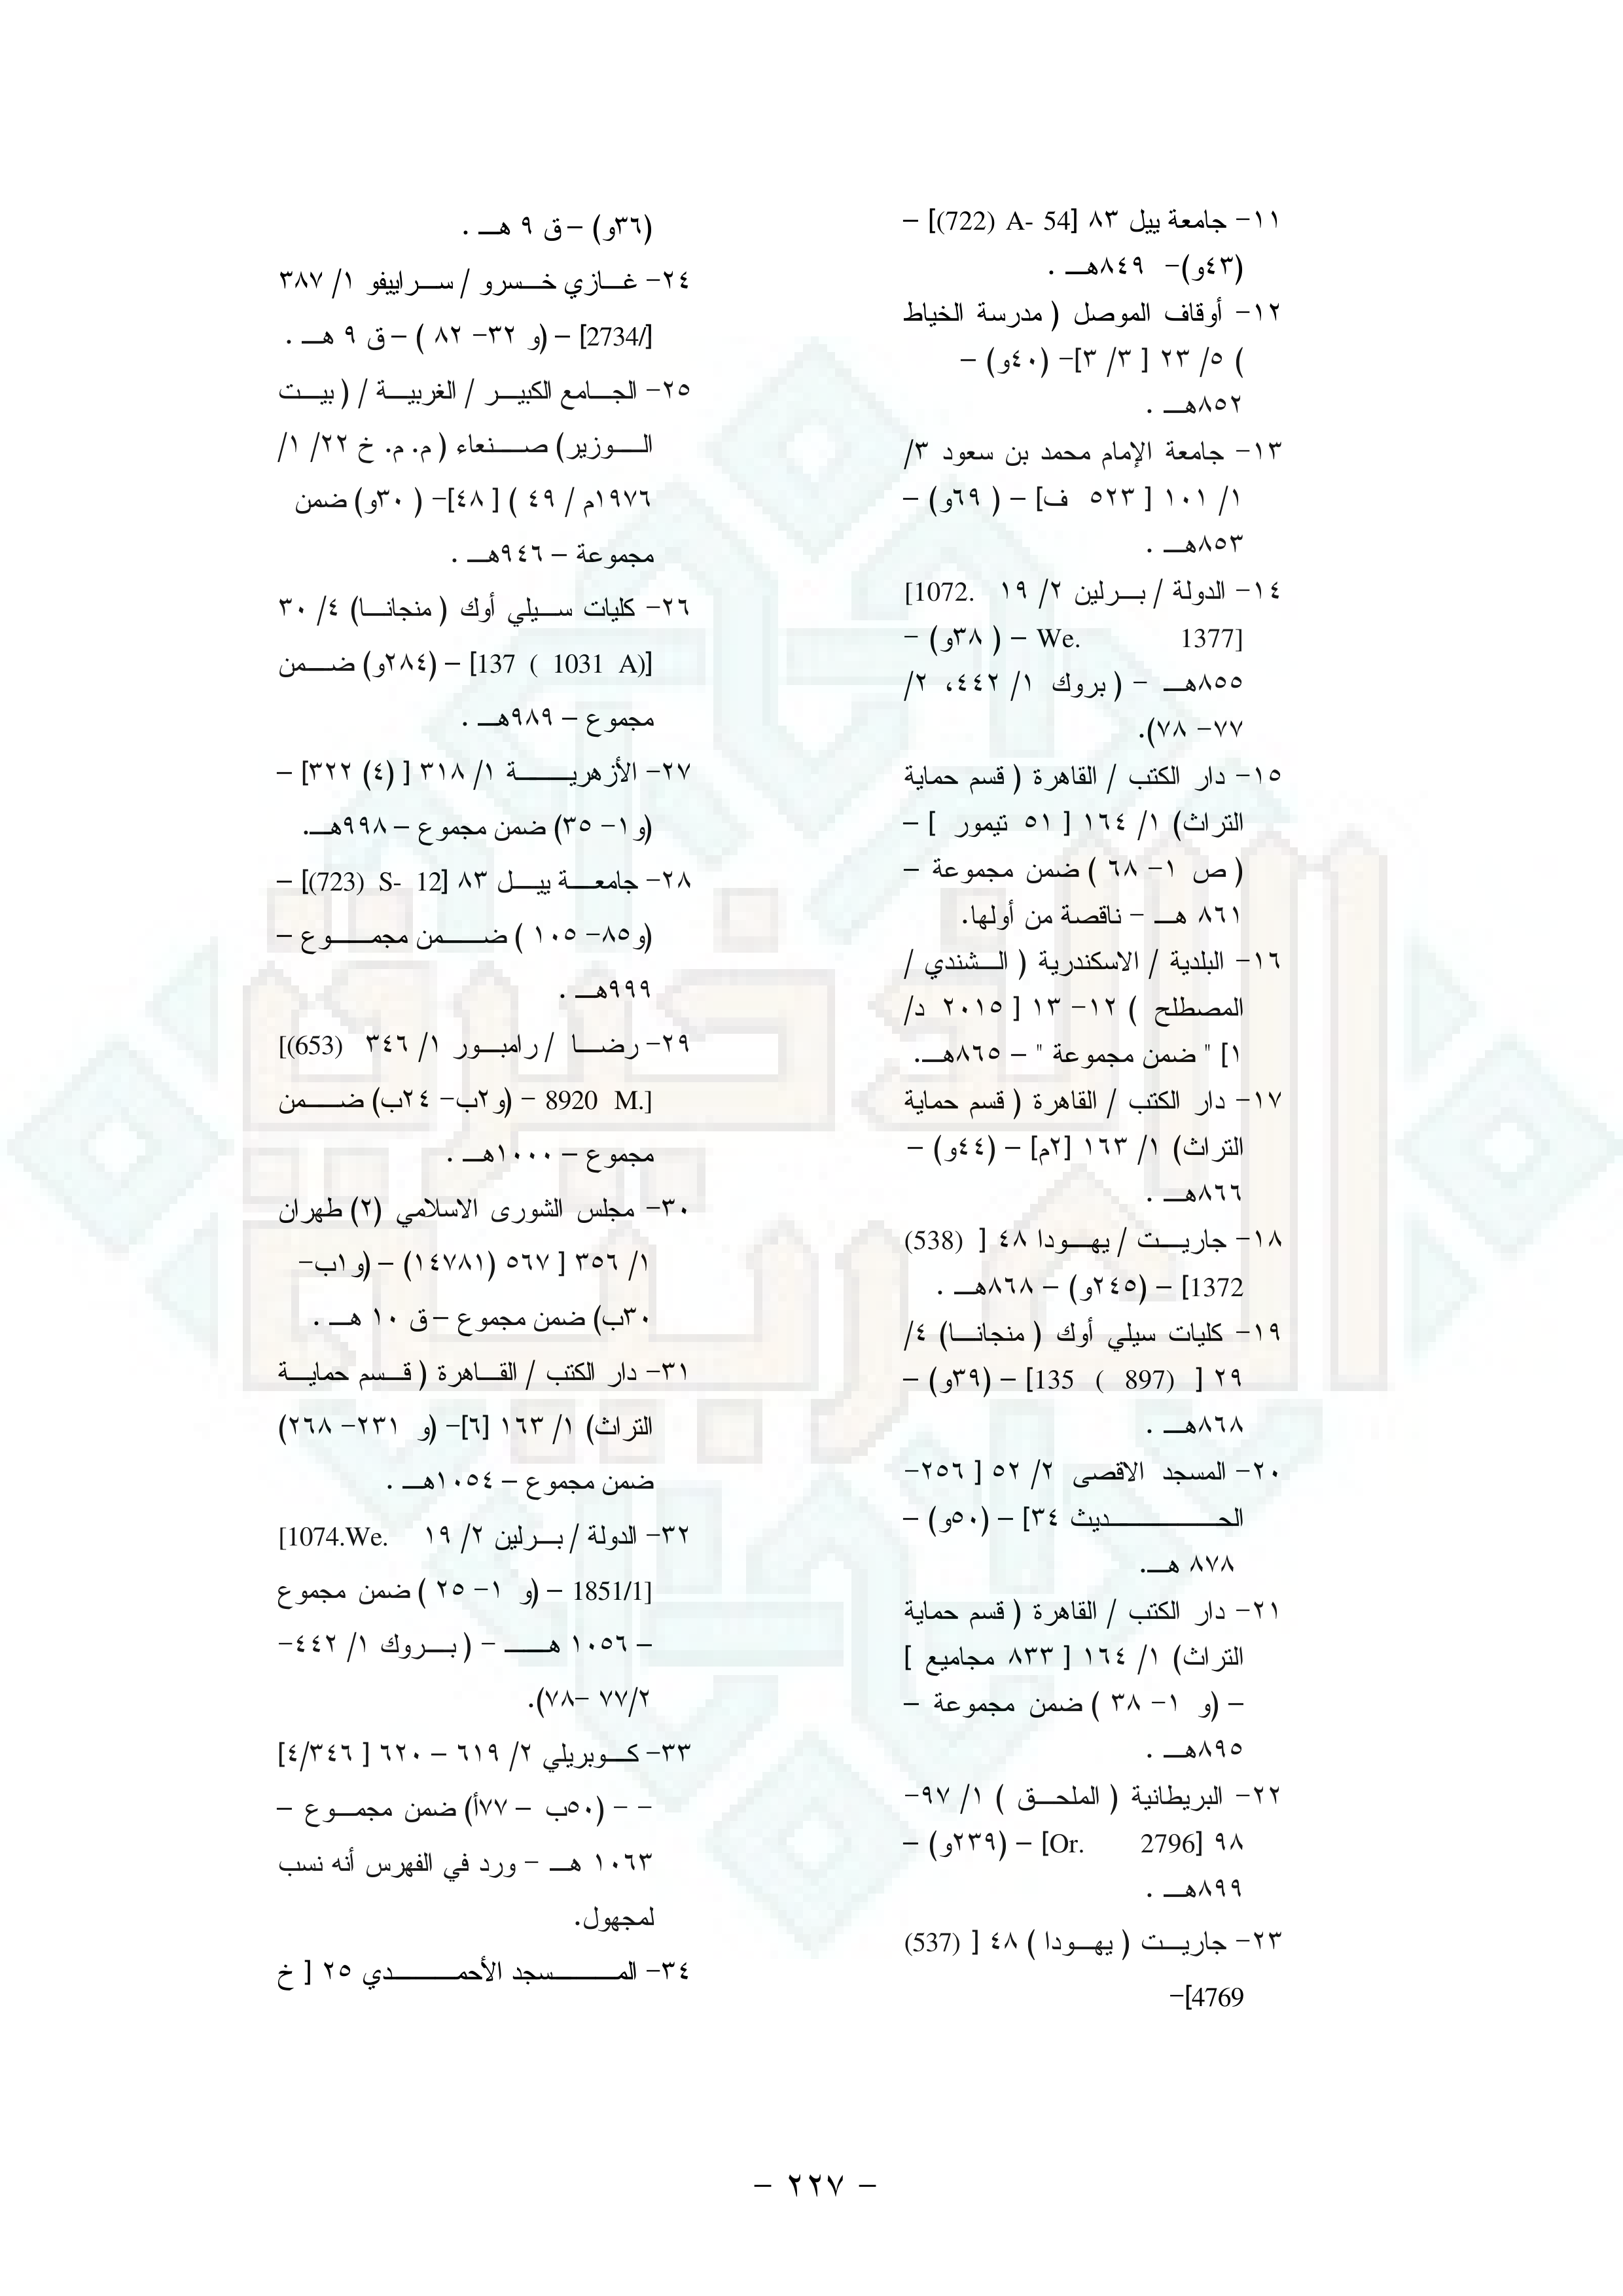 ١١- جامعة ييل ٨٣ [(722) A- 54] –
(٤٣و)- ٨٤٩هـ .
١٢- أوقاف الموصل ( مدرسة الخياط
) ٥/ ٢٣ [ ٣/ ٣]- (٤٠و) –
٨٥٢هـ .
١٣- جامعة الإمام محمد بن سعود ٣/
١/ ١٠١ [ ٥٢٣ ف] – ( ٦٩و) –
٨٥٣هـ .
١٤- الدولة / برلين ٢/ ١٩ [1072.
We. 1377] – ( ٣٨و) -
٨٥٥هـ - ( بروك ١/ ٤٤٢، ٢/
٧٧- ٧٨).
١٥- دار الكتب / القاهرة ( قسم حماية
التراث) ١/ ١٦٤ [ ٥١ تيمور ] –
( ص ١- ٦٨ ) ضمن مجموعة –
٨٦١ هـ - ناقصة من أولها.
١٦- البلدية / الاسكندرية ( الشندي /
المصطلح ) ١٢- ١٣ [ ٢٠١٥ د/
١] " ضمن مجموعة " – ٨٦٥هـ.
١٧- دار الكتب / القاهرة ( قسم حماية
التراث) ١/ ١٦٣ [٢م] – (٤٤و) –
٨٦٦هـ .
١٨- جاريت / يهودا ٤٨ [ (538)
1372] – (٢٤٥و) – ٨٦٨هـ .
١٩- كليات سيلي أوك ( منجانا) ٤/
٢٩ [ 135 ( 897)] – (٣٩و) –
٨٦٨هـ .
٢٠- المسجد الاقصى ٢/ ٥٢ [ ٢٥٦-
الحديث ٣٤] – (٥٠و) –
٨٧٨ هـ.
٢١- دار الكتب / القاهرة ( قسم حماية
التراث) ١/ ١٦٤ [ ٨٣٣ مجاميع ]
– (و ١- ٣٨ ) ضمن مجموعة –
٨٩٥هـ .
٢٢- البريطانية ( الملحق ) ١/ ٩٧-
٩٨ [Or. 2796] – (٢٣٩و) –
٨٩٩هـ .
٢٣- جاريت ( يهودا ) ٤٨ [ (537)
4769]-
(٣٦و) – ق ٩ هـ .
٢٤- غازي خسرو / سراييفو ١/ ٣٨٧
[2734/] – (و ٣٢- ٨٢ ) – ق ٩ هـ .
٢٥- الجامع الكبير / الغربية / ( بيت
الوزير) صنعاء ( م. م. خ ٢٢/ ١/
١٩٧٦م / ٤٩ ) [ ٤٨]- ( ٣٠و) ضمن
مجموعة – ٩٤٦هـ .
٢٦- كليات سيلي أوك ( منجانا) ٤/ ٣٠
[137 ( 1031 A)] – (٢٨٤و) ضمن
مجموع – ٩٨٩هـ .
٢٧- الأزهرية ١/ ٣١٨ [ (٤) ٣٢٢] –
(و١- ٣٥) ضمن مجموع – ٩٩٨هـ.
٢٨- جامعة ييل ٨٣ [(723) S- 12] –
(و٨٥- ١٠٥ ) ضمن مجموع –
٩٩٩هـ .
٢٩- رضا / رامبور ١/ ٣٤٦ [(653)
8920 M.] - (و٢ب- ٢٤ب) ضمن
مجموع – ١٠٠٠هـ .
٣٠- مجلس الشورى الاسلامي (٢) طهران
١/ ٣٥٦ [ ٥٦٧ (١٤٧٨١) – (و١ب-
٣٠ب) ضمن مجموع – ق ١٠ هـ .
٣١- دار الكتب / القاهرة ( قسم حماية
التراث) ١/ ١٦٣ [٦]- (و ٢٣١- ٢٦٨)
ضمن مجموع – ١٠٥٤هـ .
٣٢- الدولة / برلين ٢/ ١٩ [1074.We.
1851/1] – (و ١- ٢٥ ) ضمن مجموع
– ١٠٥٦ هـ - ( بروك ١/ ٤٤٢-
٢/٧٧ -٧٨).
٣٣- كوبريلي ٢/ ٦١٩ – ٦٢٠ [ ٤/٣٤٦]
- - (٥٠ب – ٧٧أ) ضمن مجموع –
١٠٦٣ هـ - ورد في الفهرس أنه نسب
لمجهول.
٣٤- المسجد الأحمدي ٢٥ [ خ
- ٢٢٧ -